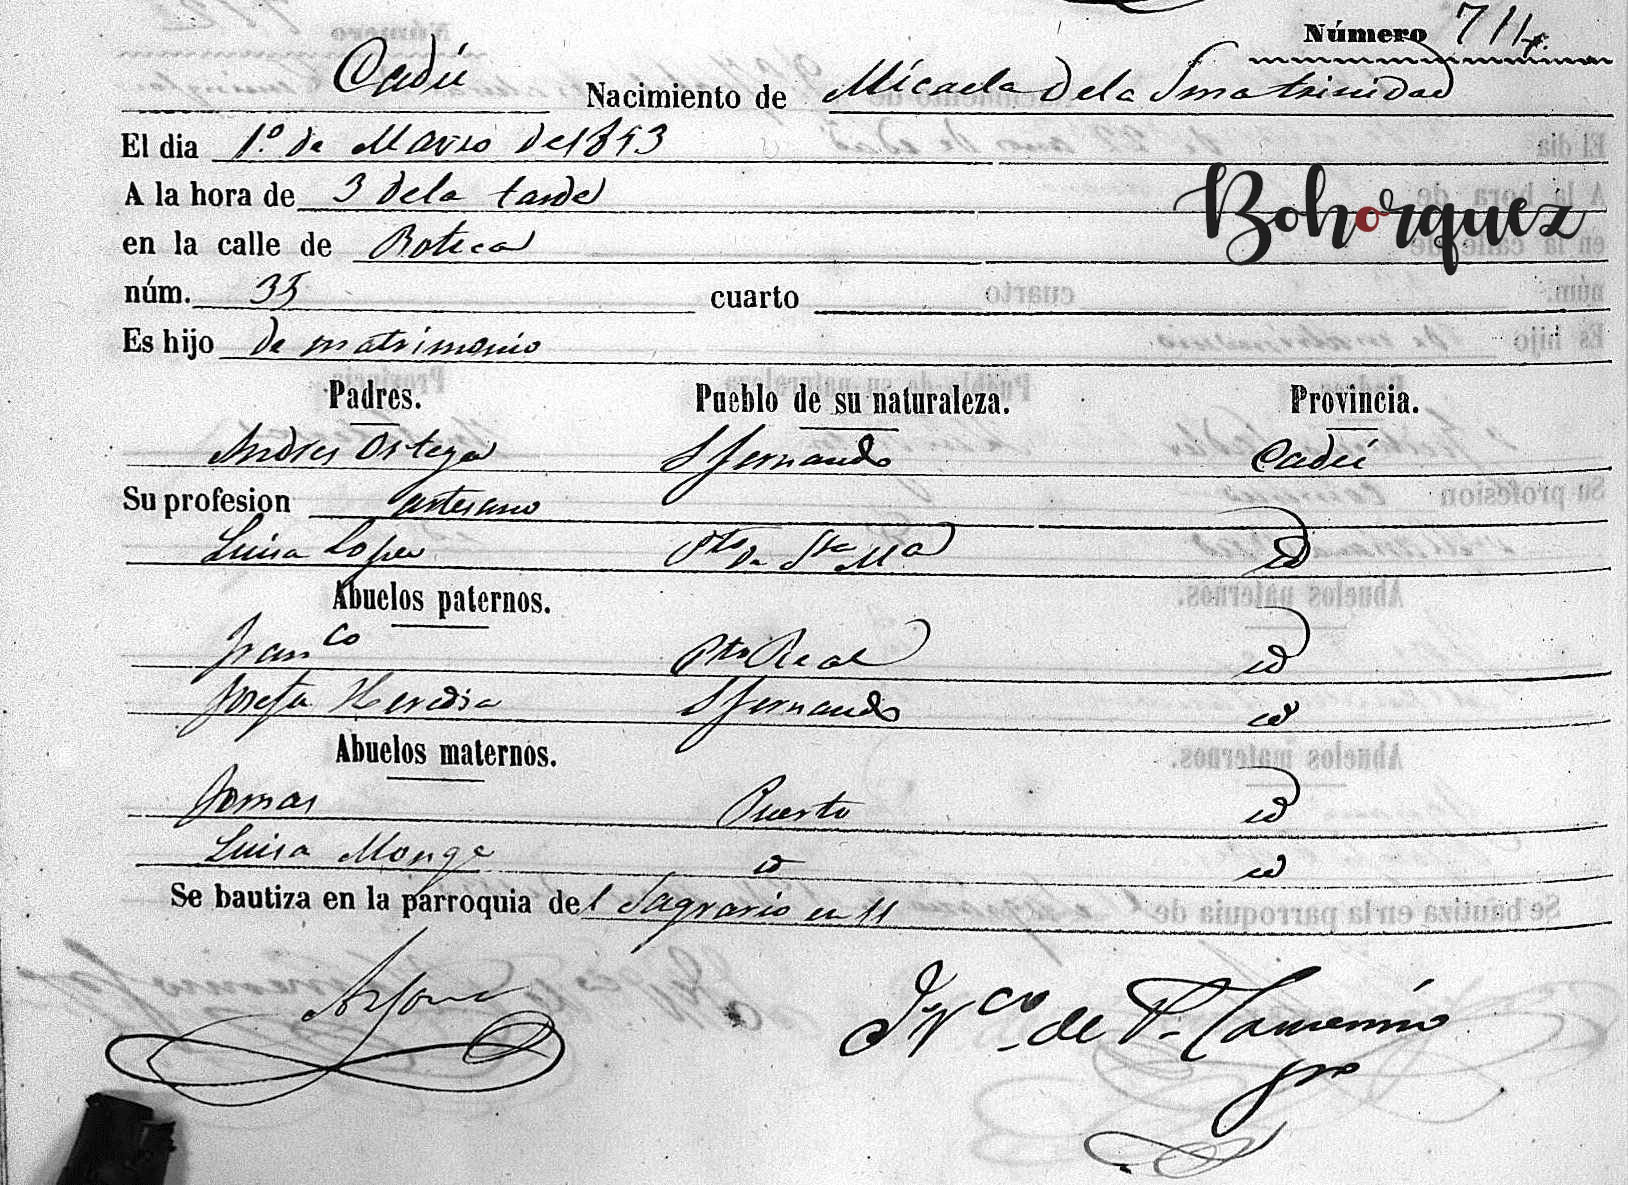 Número 714.
Cadiz Nacimiento de Micaela de la Sma trinidad
El dia 1º de Marzo de 1853
A la hora de 3 de la tarde
Bohorquez
en la calle de Boteca
núm. 35 cuarto
Es hijo de matrimonio
Padres. Pueblo de su naturaleza. Provincia.
Andres Ortega S Fernando Cadiz
Su profesion artesano
Luisa Lopez Pto de Sta Ma id
Abuelos paternos.
Franco Pto Real id
Josefa Heredia S Fernando id
Abuelos maternos.
Tomas Puerto id
Luisa Monge id id
Se bautiza en la parroquia del Sagrario en 11
Fco de P.